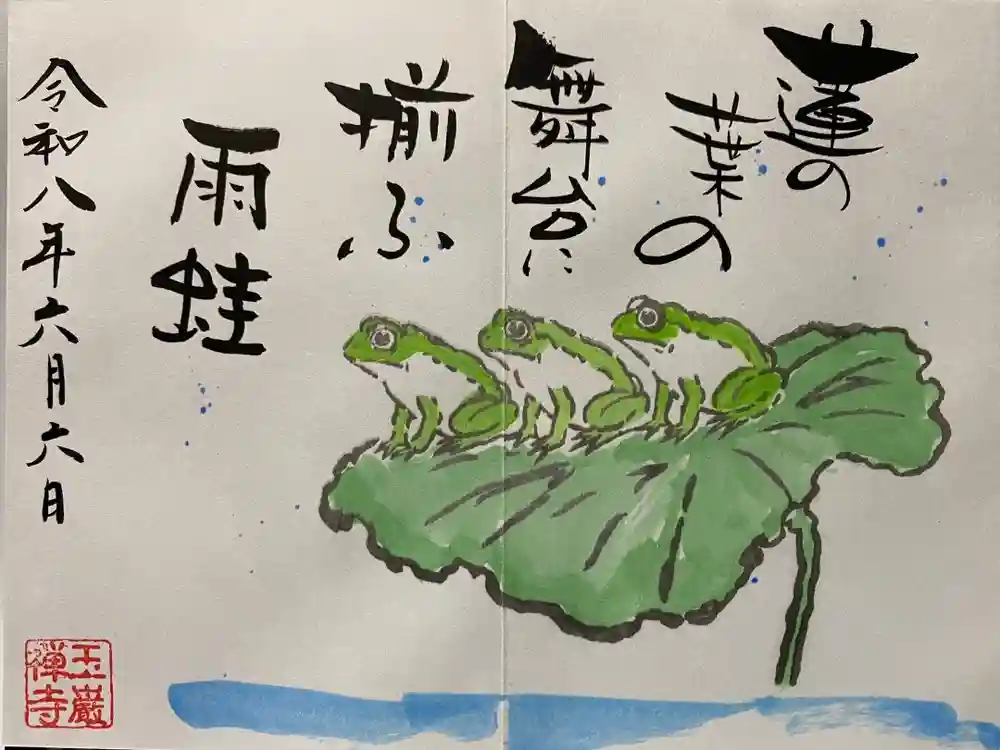 蓮の
葉の
舞台に
揃ふ
雨蛙
令和八年六月六日
玉巖
禅寺